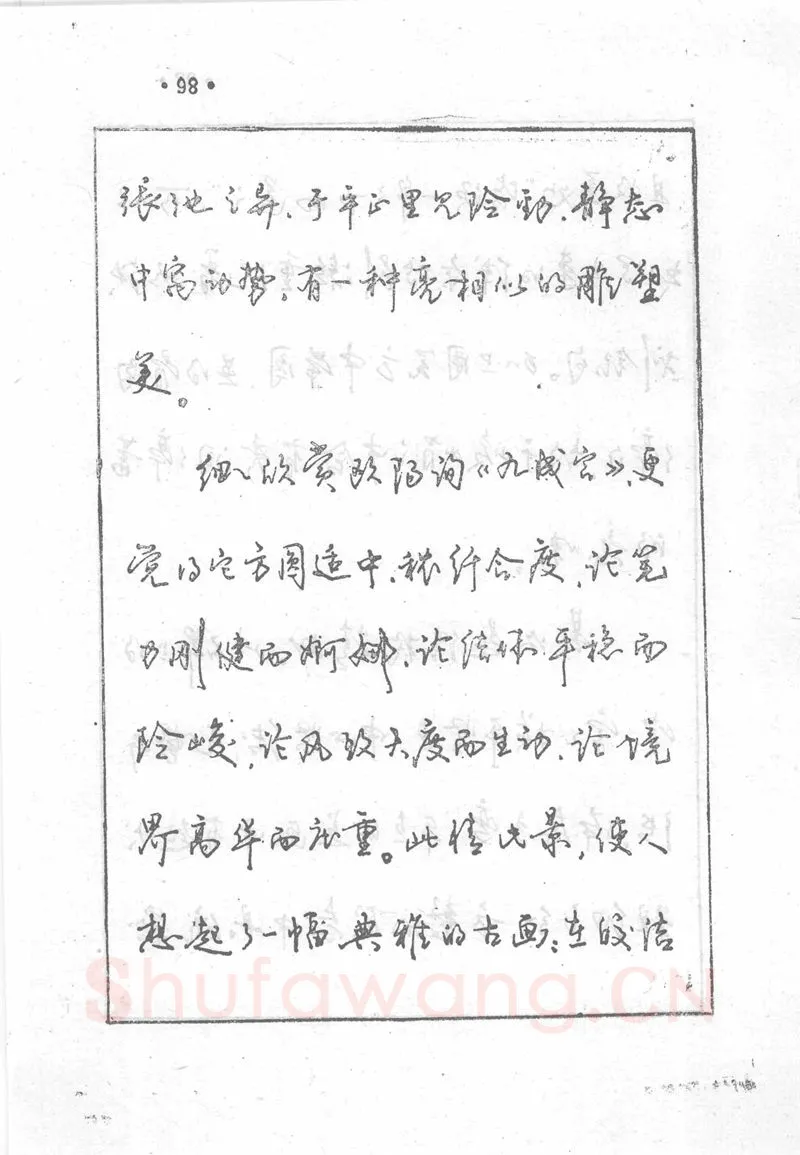 ·98·
張弛之异、于平正里见险劲、静态
中寓动势,有一种亮相似的雕塑
美。
细细欣赏欧阳询《九成宫》、更
觉得它方圆适中、秾纤合度、论笔
力刚健而婀娜、论结体平稳而
险峻,论风致大度而生动、论境
界高华而庄重。此情此景,使人
想起了一幅典雅的古画:在皎洁
Shufawang.CN